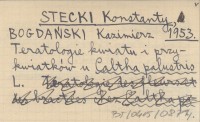 STECKI Konstanty,
BOGDAŃSKI Kazimierz 1953.
Teratologie kwiatu i przy-
kwiatków u Caltha palustris
L.